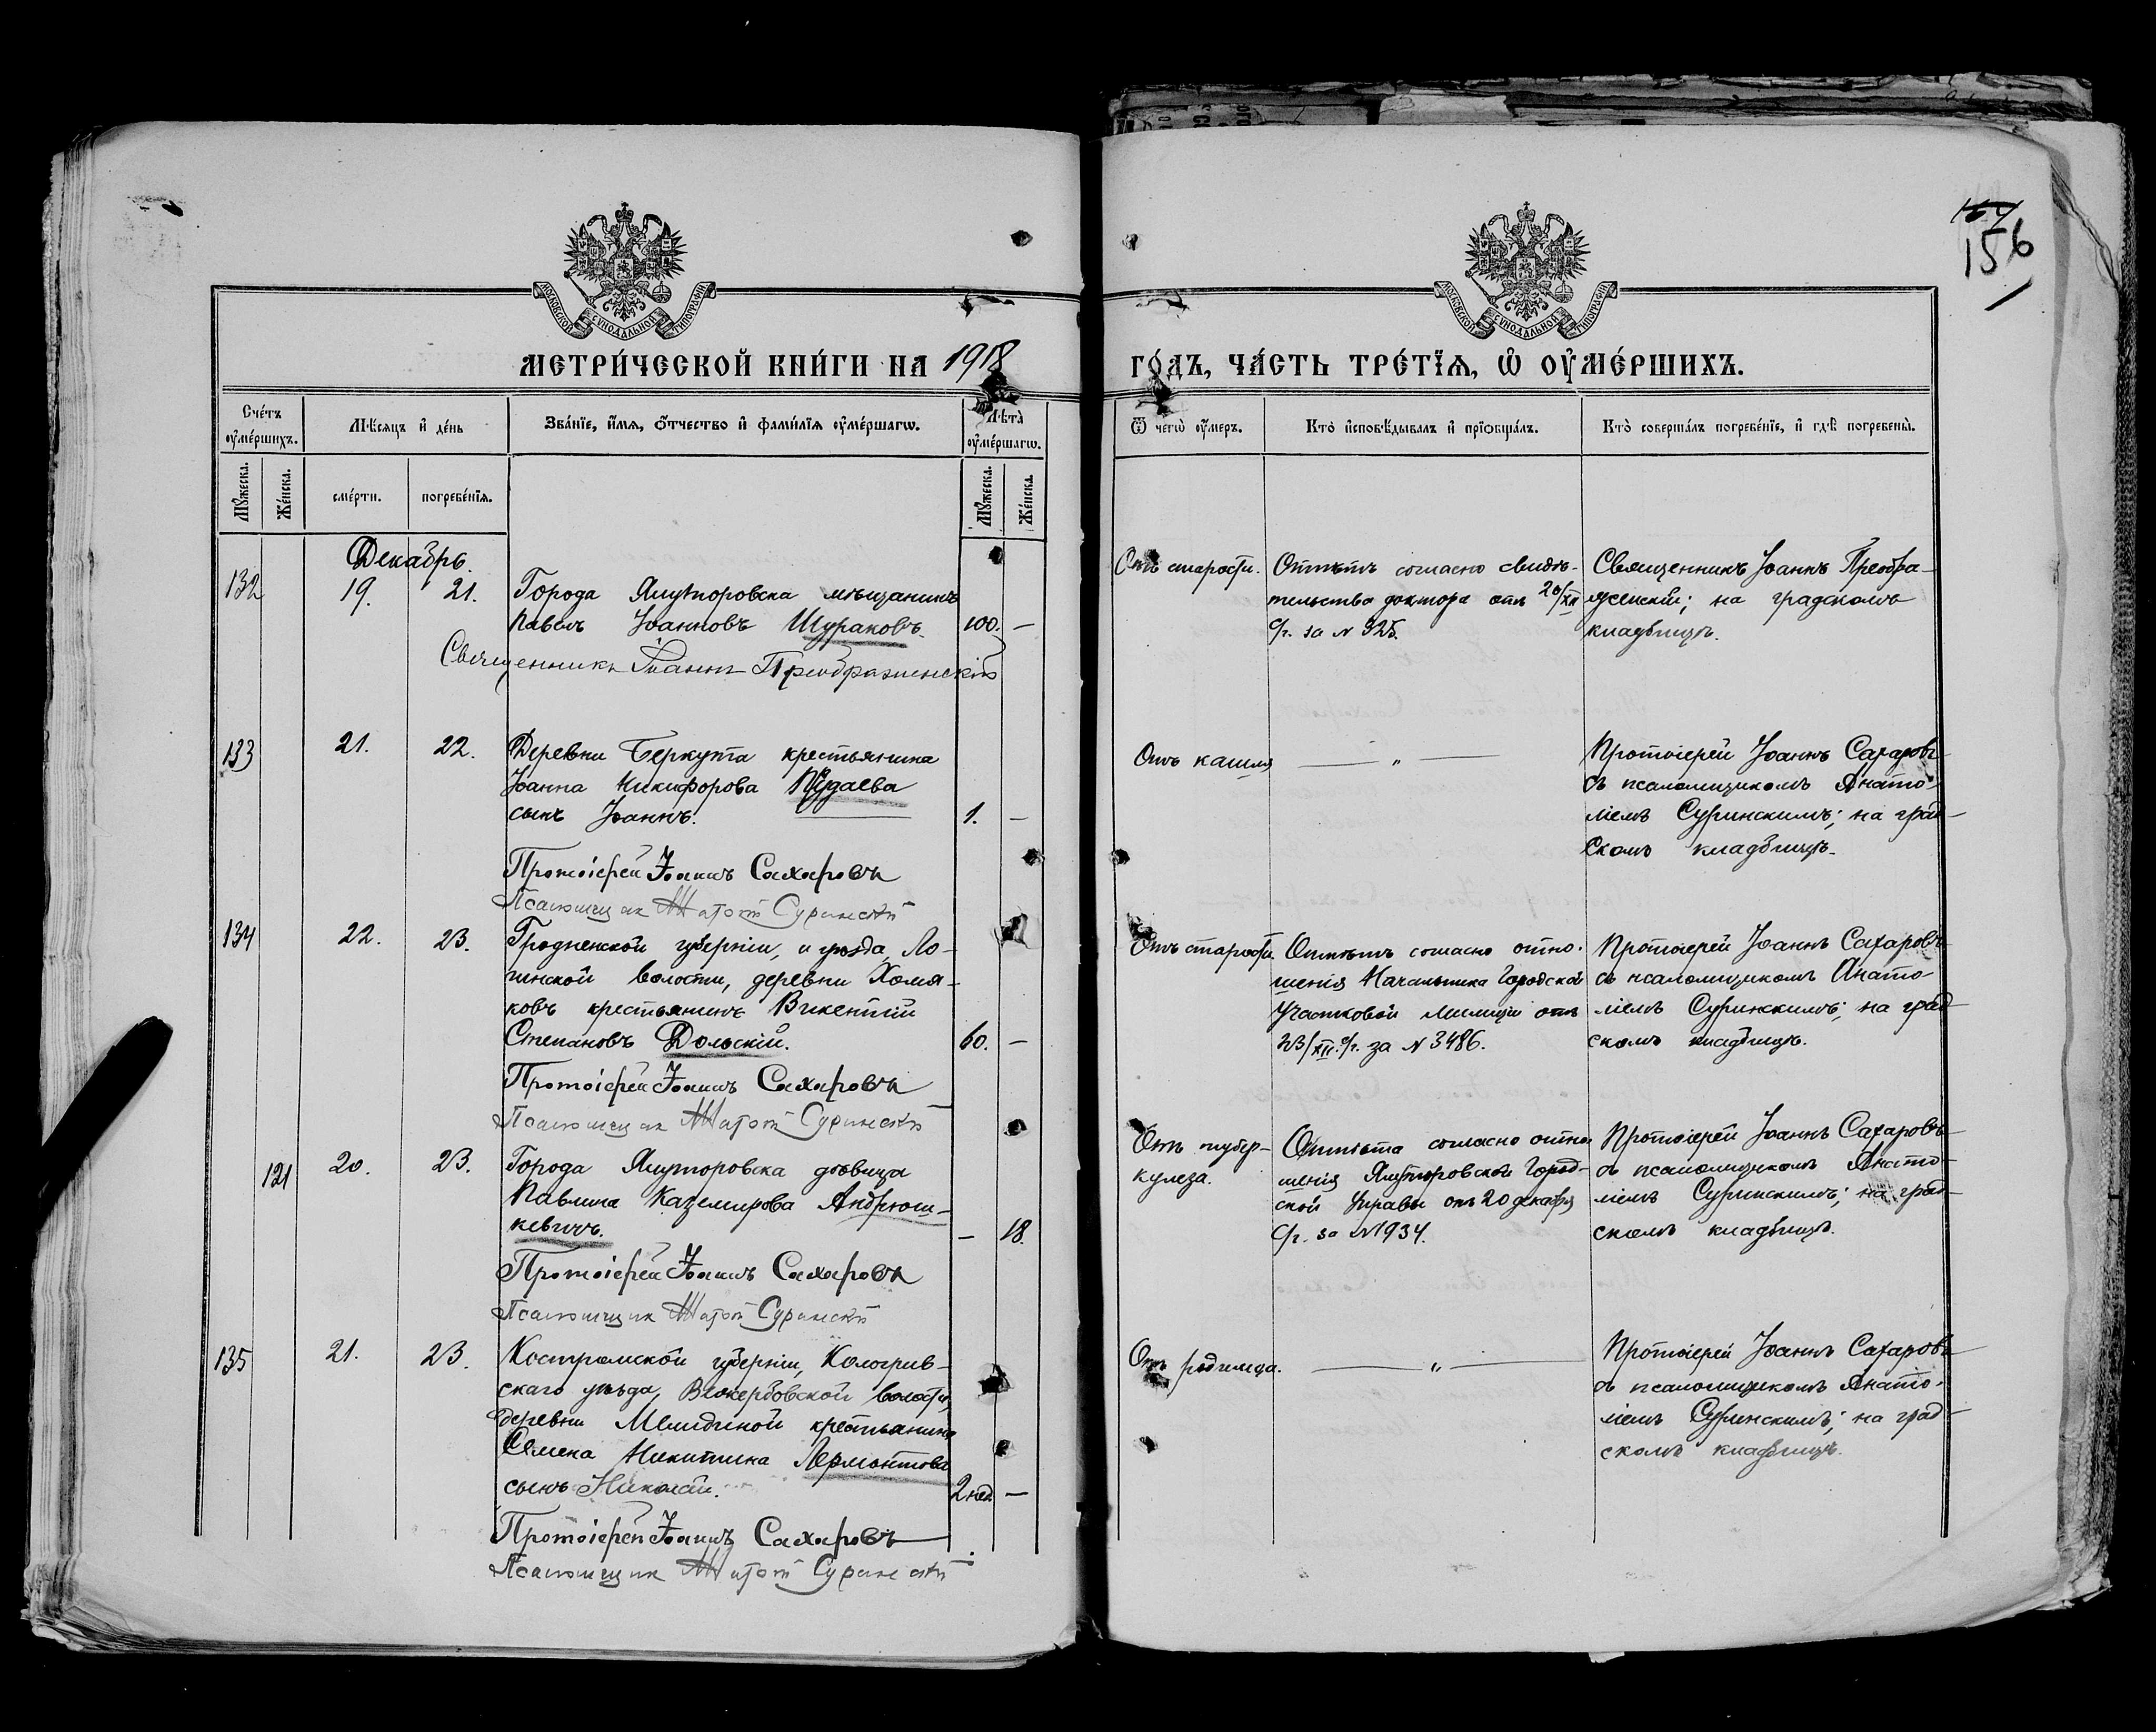 156
МОСКОВСКОЙ СѴНОДАЛЬНОЙ ТИПОГРАФІИ
МОСКОВСКОЙ СѴНОДАЛЬНОЙ ТИПОГРАФІИ
МЕТРИ́ЧЕСКОЙ КНИ́ГИ НА 1918
ГО́ДЪ, ЧА́СТЬ ТРЕ́ТЇѦ, Ѽ ОУ҆МЕ́РШИХЪ.
Сче́тъ оу҆ме́ршихъ.
Мꙋ́жеска.
Же́нска.
Мѣ́сяцъ и҆ де́нь
сме́рти.
погребе́нїѧ.
Зва́нїе, и҆́мѧ, ѻ҆́тчество и҆ фами́лїѧ оу҆ме́ршагѡ.
Лѣта̀ оу҆ме́ршагѡ.
Мꙋ́жеска.
Же́нска.
Ѿ чегѡ̀ оу҆́меръ.
Кто̀ и҆сповѣ́дывалъ и҆ прїѡбща́лъ.
Кто̀ соверша́лъ погребе́нїе, и҆ гдѣ̀ погребены̀.
Декабрь.
132
19.
21.
Города Ялуторовска мѣщанинъ
Павелъ Іоанновъ Шураковъ.
100. —
Священникъ Іоаннъ Преображенскій
Отъ старости.
Отпѣтъ согласно свидѣ-
тельства доктора отъ 20/XII
с/г. за № 925.
Священникъ Іоаннъ Преобра-
женскій; на градскомъ
кладбищѣ.
133
21.
22.
Деревни Беркута крестьянина
Іоанна Никифорова Пудаева
сынъ Іоаннъ.
1. —
Протоіерей Іоаннъ Сахаровъ
Псаломщик Анатол Суринскій
Отъ кашля
— „ —
Протоіерей Іоаннъ Сахаровъ
съ псаломщикомъ Анато-
ліемъ Суринскимъ; на град-
скомъ кладбищѣ.
134
22.
23.
Гродненской губерніи, и уѣзда, Ло-
пинской волости, деревни Хомя-
ковъ крестьянинъ Викентій
Степановъ Дольскій.
60. —
Протоіерей Іоаннъ Сахаровъ
Псаломщик Анатол Суринскій
Отъ старости
Отпѣтъ согласно отно-
шенія Начальника Городской
Участковой Милиціи отъ
23/XII с/г. за № 3486.
Протоіерей Іоаннъ Сахаровъ
съ псаломщикомъ Анато-
ліемъ Суринскимъ; на град-
скомъ кладбищѣ.
121
20.
23.
Города Ялуторовска дѣвица
Павлина Каземирова Андрюш-
кевичъ.
— 18.
Протоіерей Іоаннъ Сахаровъ
Псаломщик Анатол Суринскій
Отъ тубер-
кулеза.
Отпѣта согласно отно-
шенія Ялуторовской Город-
ской Управы отъ 20 декабря
с/г. за № 1934.
Протоіерей Іоаннъ Сахаровъ
съ псаломщикомъ Анато-
ліемъ Суринскимъ; на град-
скомъ кладбищѣ.
135
21.
23.
Костромской губерніи, Кологрив-
скаго уѣзда,
волости,
деревни
крестьянина
Семена Никитина Лермонтова
сынъ Николай.
2 нед. —
Протоіерей Іоаннъ Сахаровъ
Псаломщик Анатол Суринскій
Отъ родимца.
— „ —
Протоіерей Іоаннъ Сахаровъ
съ псаломщикомъ Анато-
ліемъ Суринскимъ; на град-
скомъ кладбищѣ.